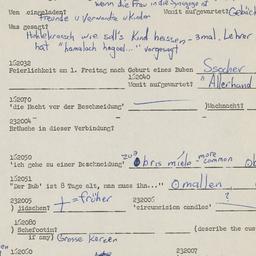 wenn die Frau in die Synagoge ist
Wen eingeladen? Womit aufgewartet? Gebäck
Freunde u Verwandte u Kinder
Was gesagt?
Hohlekrasch wie soll's Kind heissen - 3mal. Lehrer
hat "hamaloch hagoel..." vorgesagt
152032
Feierlichkeit am 1. Freitag nach Geburt eines Buben Ssocher
152040
Womit aufgewartet? Allerhand
152070
'die Nacht vor der Beschneidung' )Wachnacht?
232004
Bräuche in dieser Verbindung?
152050 more
'ich gehe zu einer Beschneidung' zu bris mielo - common
152051
"Der Bub' ist 8 Tage alt, man muss ihn..." omallen
232005 + = früher 232006 ?
) Jüdischen? 'circumcision candles'
152080
) Schefootin? (describe the cus
if any) Grosse Kerzen
152060 232007